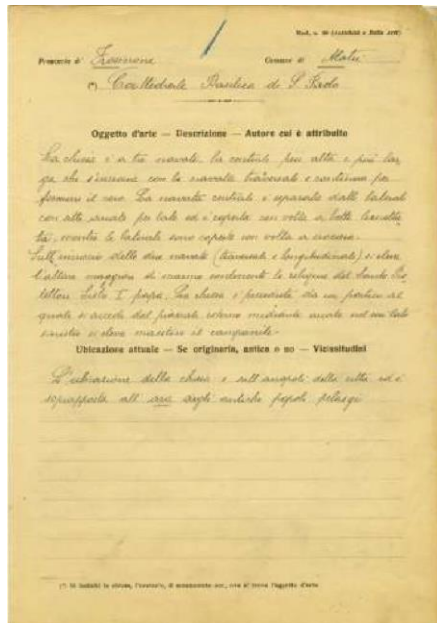 Mod. n. 30 (Antichità e Belle Arti)
Provincia di Frosinone Comune di Alatri
(*) Cattedrale Basilica di S. Paolo
Oggetto d'arte — Descrizione — Autore cui è attribuito
La chiesa è a tre navate, la centrale più alta e più lar
ga che s'incrocia con la navata trasversale e continua per
formare il coro. La navata centrale è separata dalle laterali
con alte arcate per lato ed è coperta con volta a botte lunetta
ta, mentre le laterali sono coperte con volta a crociera.
Sull'incrocio delle due navate (trasversale e longitudinale) si eleva
l'altare maggiore di marmo contenente le reliquie del Santo Pro
tettore Sisto I papa. La chiesa è preceduta da un portico al
quale si accede dal piazzale esterno mediante arcate nel cui lato
sinistro si eleva maestoso il campanile.
Ubicazione attuale — Se originaria, antica o no — Vicissitudini
L'ubicazione della chiesa è sull'acropoli della città ed è
sovrapposta all'ara degli antichi popoli pelasgi
(*) Si indichi la chiesa, l'oratorio, il monumento ecc., ove si trova l'oggetto d'arte